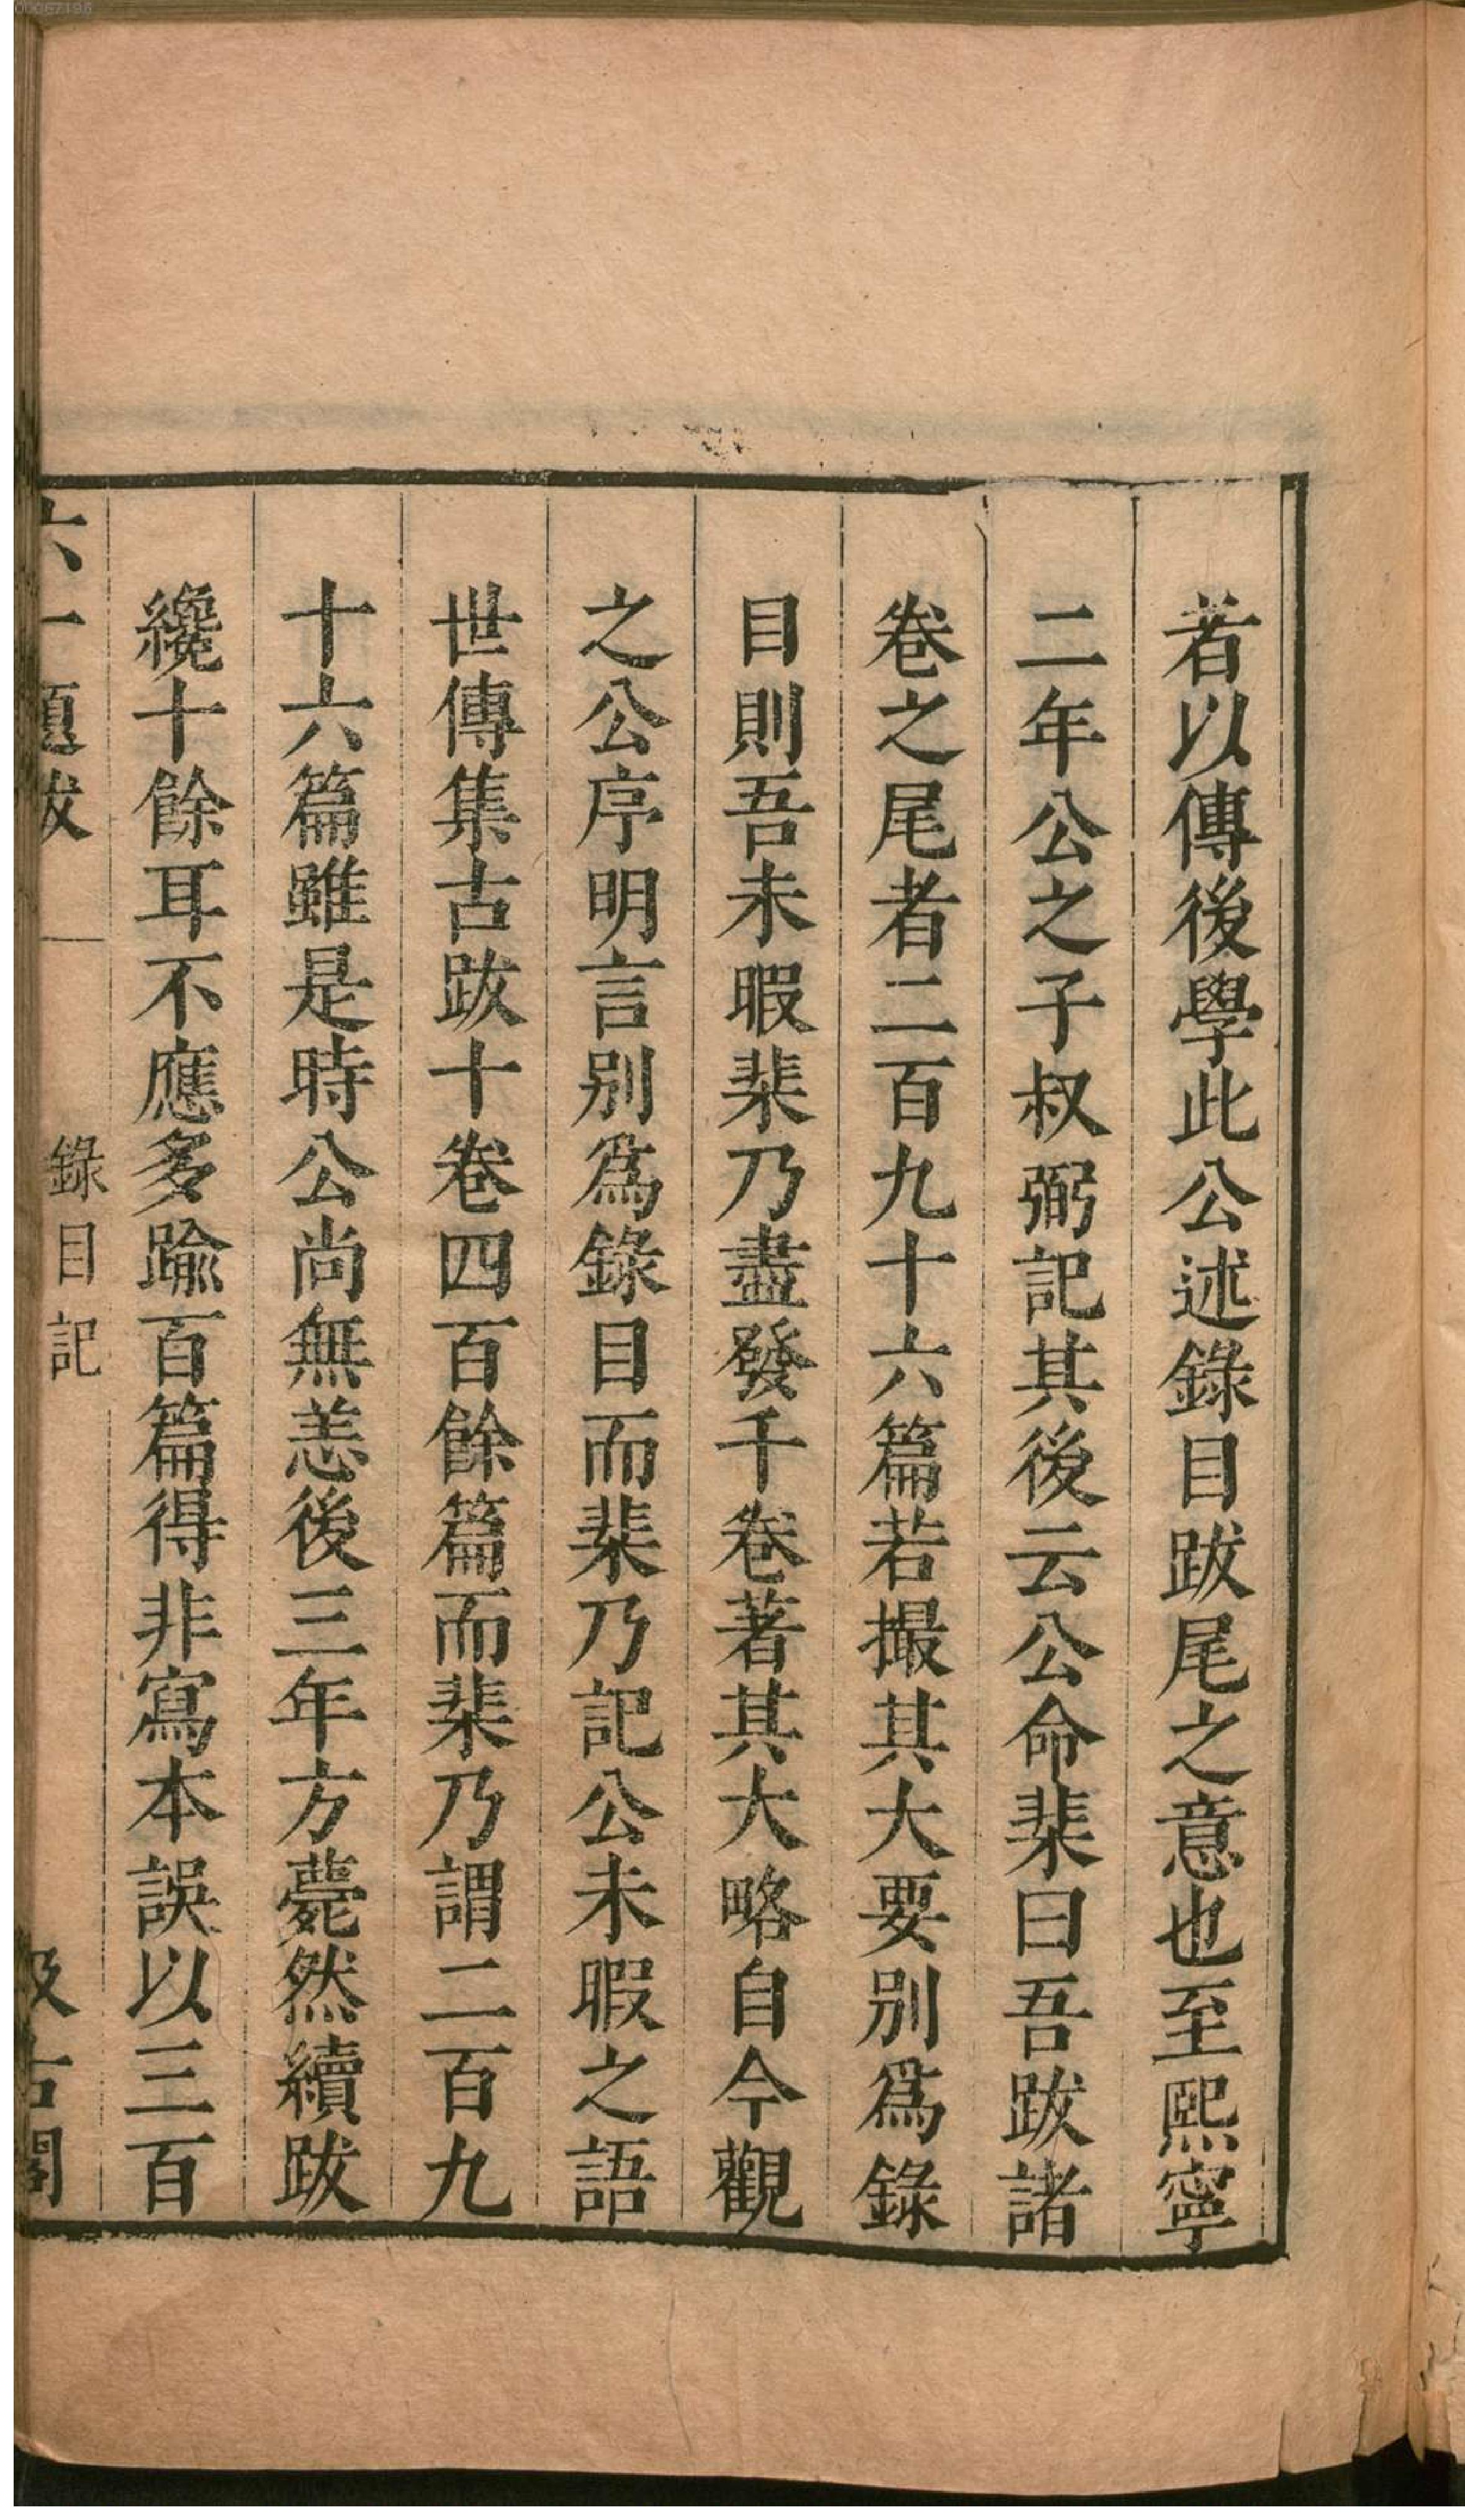 若以傳後學此公述錄目跋尾之意也至熙寧
二年公之子叔弼記其後云公命棐曰吾跋諸
卷之尾者二百九十六篇若撮其大要别爲錄
目則吾未暇棐乃盡發千卷著其大略自今觀
之公序明言别爲錄目而棐乃記公未暇之語
世傳集古跋十卷四百餘篇而棐乃謂二百九
十六篇雖是時公尚無恙後三年方薨然續跋
纔十餘耳不應多踰百篇得非寫本誤以三百
六一題跋 錄目記 汲古閣
00067195